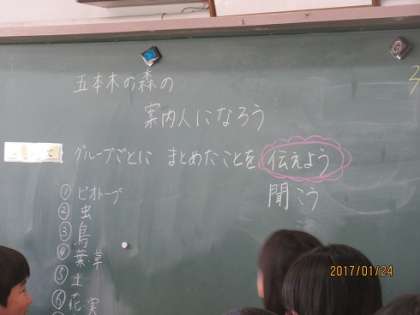 五本木の森の
案内人になろう
グループごとに まとめたことを 伝えよう
聞こう
① ビオトープ
② 虫
③ 鳥
④ 葉・草
⑤ 土
⑥ 花 実
2017/01/24